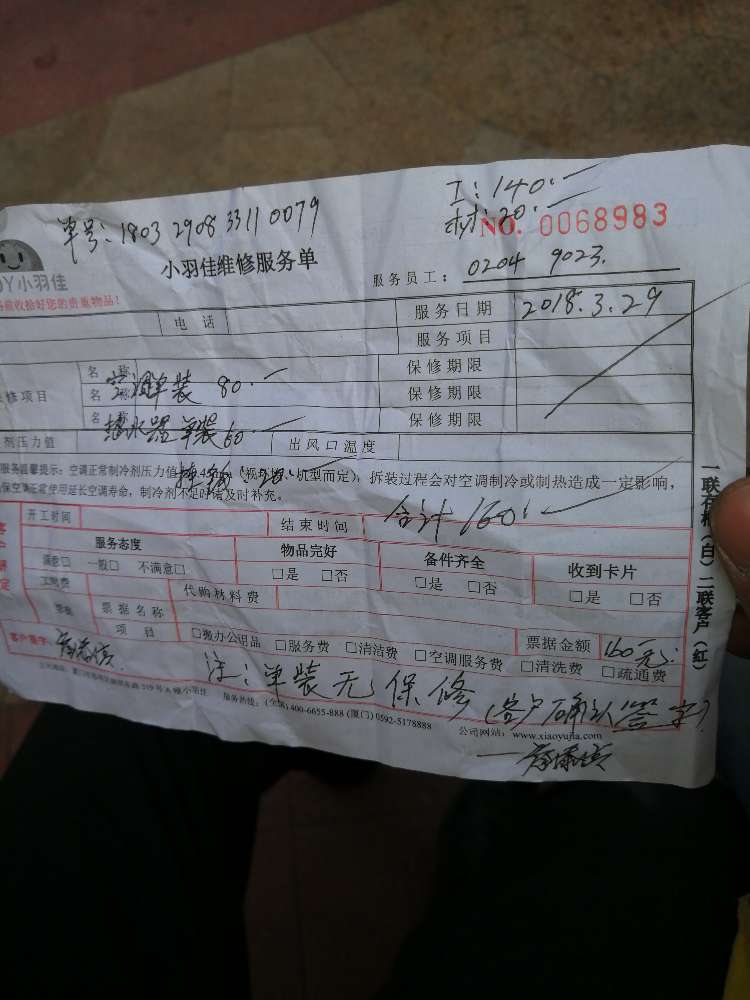 单号:1803 2908 3311 0079
工:140.—
材:20.—
NO. 0068983
小羽佳
小羽佳维修服务单
服务员工: 0204 9023.
收拾好您的贵重物品!
电 话
服务日期 2018.3.29
服务项目
修项目
名 称 空调单装 80.—
保修期限
名 称
保修期限
名 称 热水器单装60.—
保修期限
剂压力值
出风口温度
服务温馨提示:空调正常制冷剂压力值 机型而定),拆装过程会对空调制冷或制热造成一定影响,
20.—
保空调正常使用延长空调寿命,制冷剂不足时请及时补充。
合计 160.—
开工时间
结束时间
服务态度
物品完好
备件齐全
收到卡片
满意□ 一般□ 不满意□
□是 □否
□是 □否
□是 □否
工时费
代购材料费
票据名称
项 目
□搬办公用品 □服务费 □清洁费 □空调服务费 □清洗费 □疏通费
票据金额 160元
客户签字:
注:单装无保修(客户确认签字)
319号A幢小羽佳
服务热线:(全国)400-6655-888 (厦门)0592-5178888
公司网站:www.xiaoyujia.com
一联存根(白)二联客户(红)